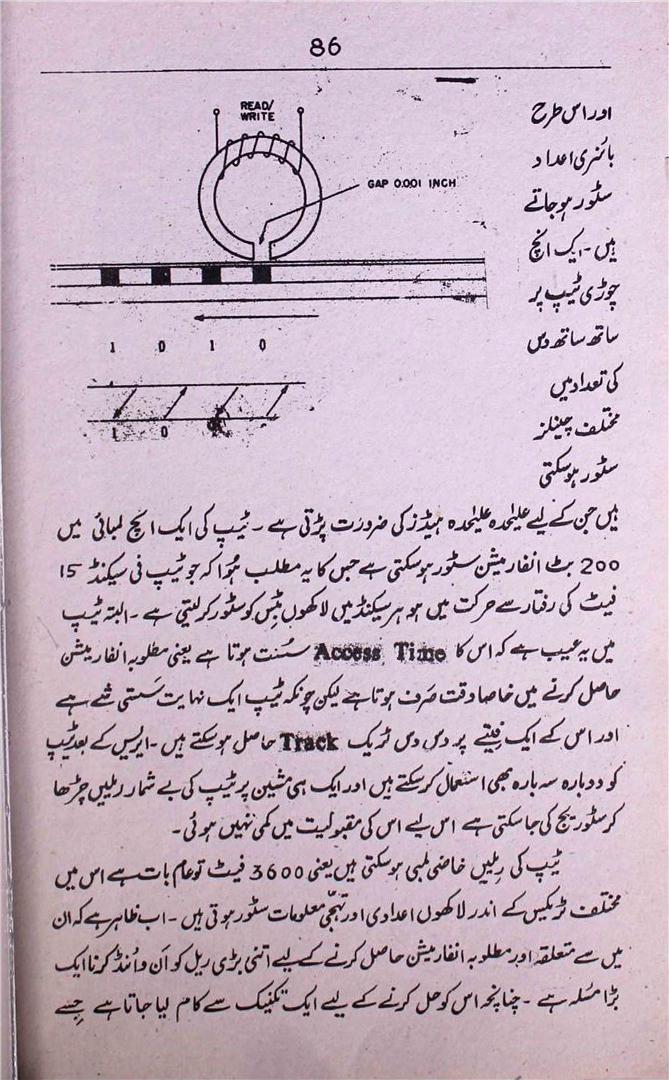 86
READ/
WRITE
GAP 0.001 INCH
1 0 1 0
1 0
اور اس طرح
بائنری اعداد
سٹور ہو جاتے
ہیں۔ ایک انچ
چوڑی ٹیپ پر
ساتھ ساتھ دس
کی تعداد میں
مختلف چینلز
سٹور ہو سکتی
ہیں جن کے لیے علیٰحدہ علیٰحدہ ہیڈز کی ضرورت پڑتی ہے۔ ٹیپ کی ایک انچ لمبائی میں
200 بٹ انفارمیشن سٹور ہو سکتی ہے جس کا یہ مطلب ہؤا کہ جو ٹیپ فی سیکنڈ 15
فیٹ کی رفتار سے حرکت میں ہو ہر سیکنڈ میں لاکھوں بٹس کو سٹور کر لیتی ہے۔ البتہ ٹیپ
میں یہ عیب ہے کہ اس کا Access Time سُست ہوتا ہے یعنی مطلوبہ انفارمیشن
حاصل کرنے میں خاصا وقت صَرف ہوتا ہے لیکن چونکہ ٹیپ ایک نہایت سَستی شے ہے
اور اس کے ایک فیتے پر دس دس ٹریک Track حاصل ہو سکتے ہیں۔ ایریس کے بعد ٹیپ
کو دوبارہ سہ بارہ بھی استعمال کر سکتے ہیں اور ایک ہی مشین پر ٹیپ کی بے شمار ریلیں چڑھا
کر سٹوریج کی جا سکتی ہے اس لیے اس کی مقبولیت میں کمی نہیں ہوئی۔
ٹیپ کی ریلیں خاصی لمبی ہو سکتی ہیں یعنی 3600 فیٹ تو عام بات ہے اس میں
مختلف ٹریکس کے اندر لاکھوں اعدادی اور تہجّی معلومات سٹور ہوتی ہیں۔ اب ظاہر ہے کہ ان
میں سے متعلقہ اور مطلوبہ انفارمیشن حاصل کرنے کے لیے اتنی بڑی ریل کو اَن وائنڈ کرنا ایک
بڑا مسٔلہ ہے۔ چنانچہ اس کو حل کرنے کے لیے ایک تکنیک سے کام لیا جاتا ہے جِسے